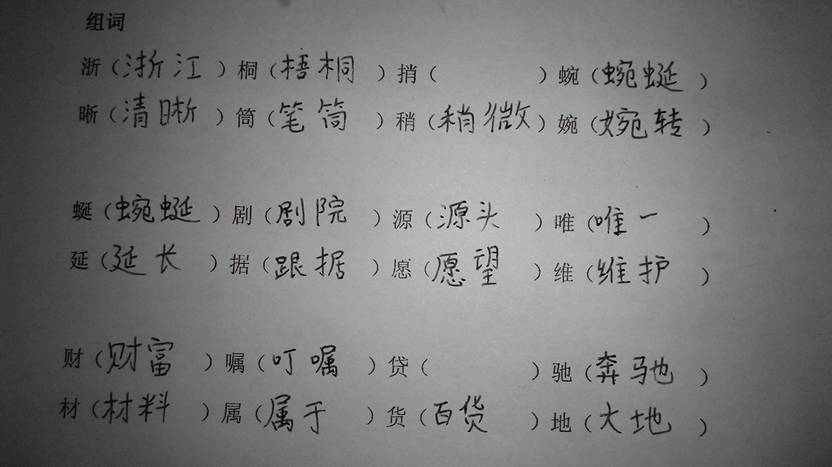 组词
浙（浙江）桐（梧桐）捎（ ）蜿（蜿蜒）
晰（清晰）筒（笔筒）稍（稍微）婉（婉转）
蜒（蜿蜒）剧（剧院）源（源头）唯（唯一）
延（延长）据（跟据）愿（愿望）维（维护）
财（财富）嘱（叮嘱）贷（ ）驰（奔驰）
材（材料）属（属于）货（百货）地（大地）